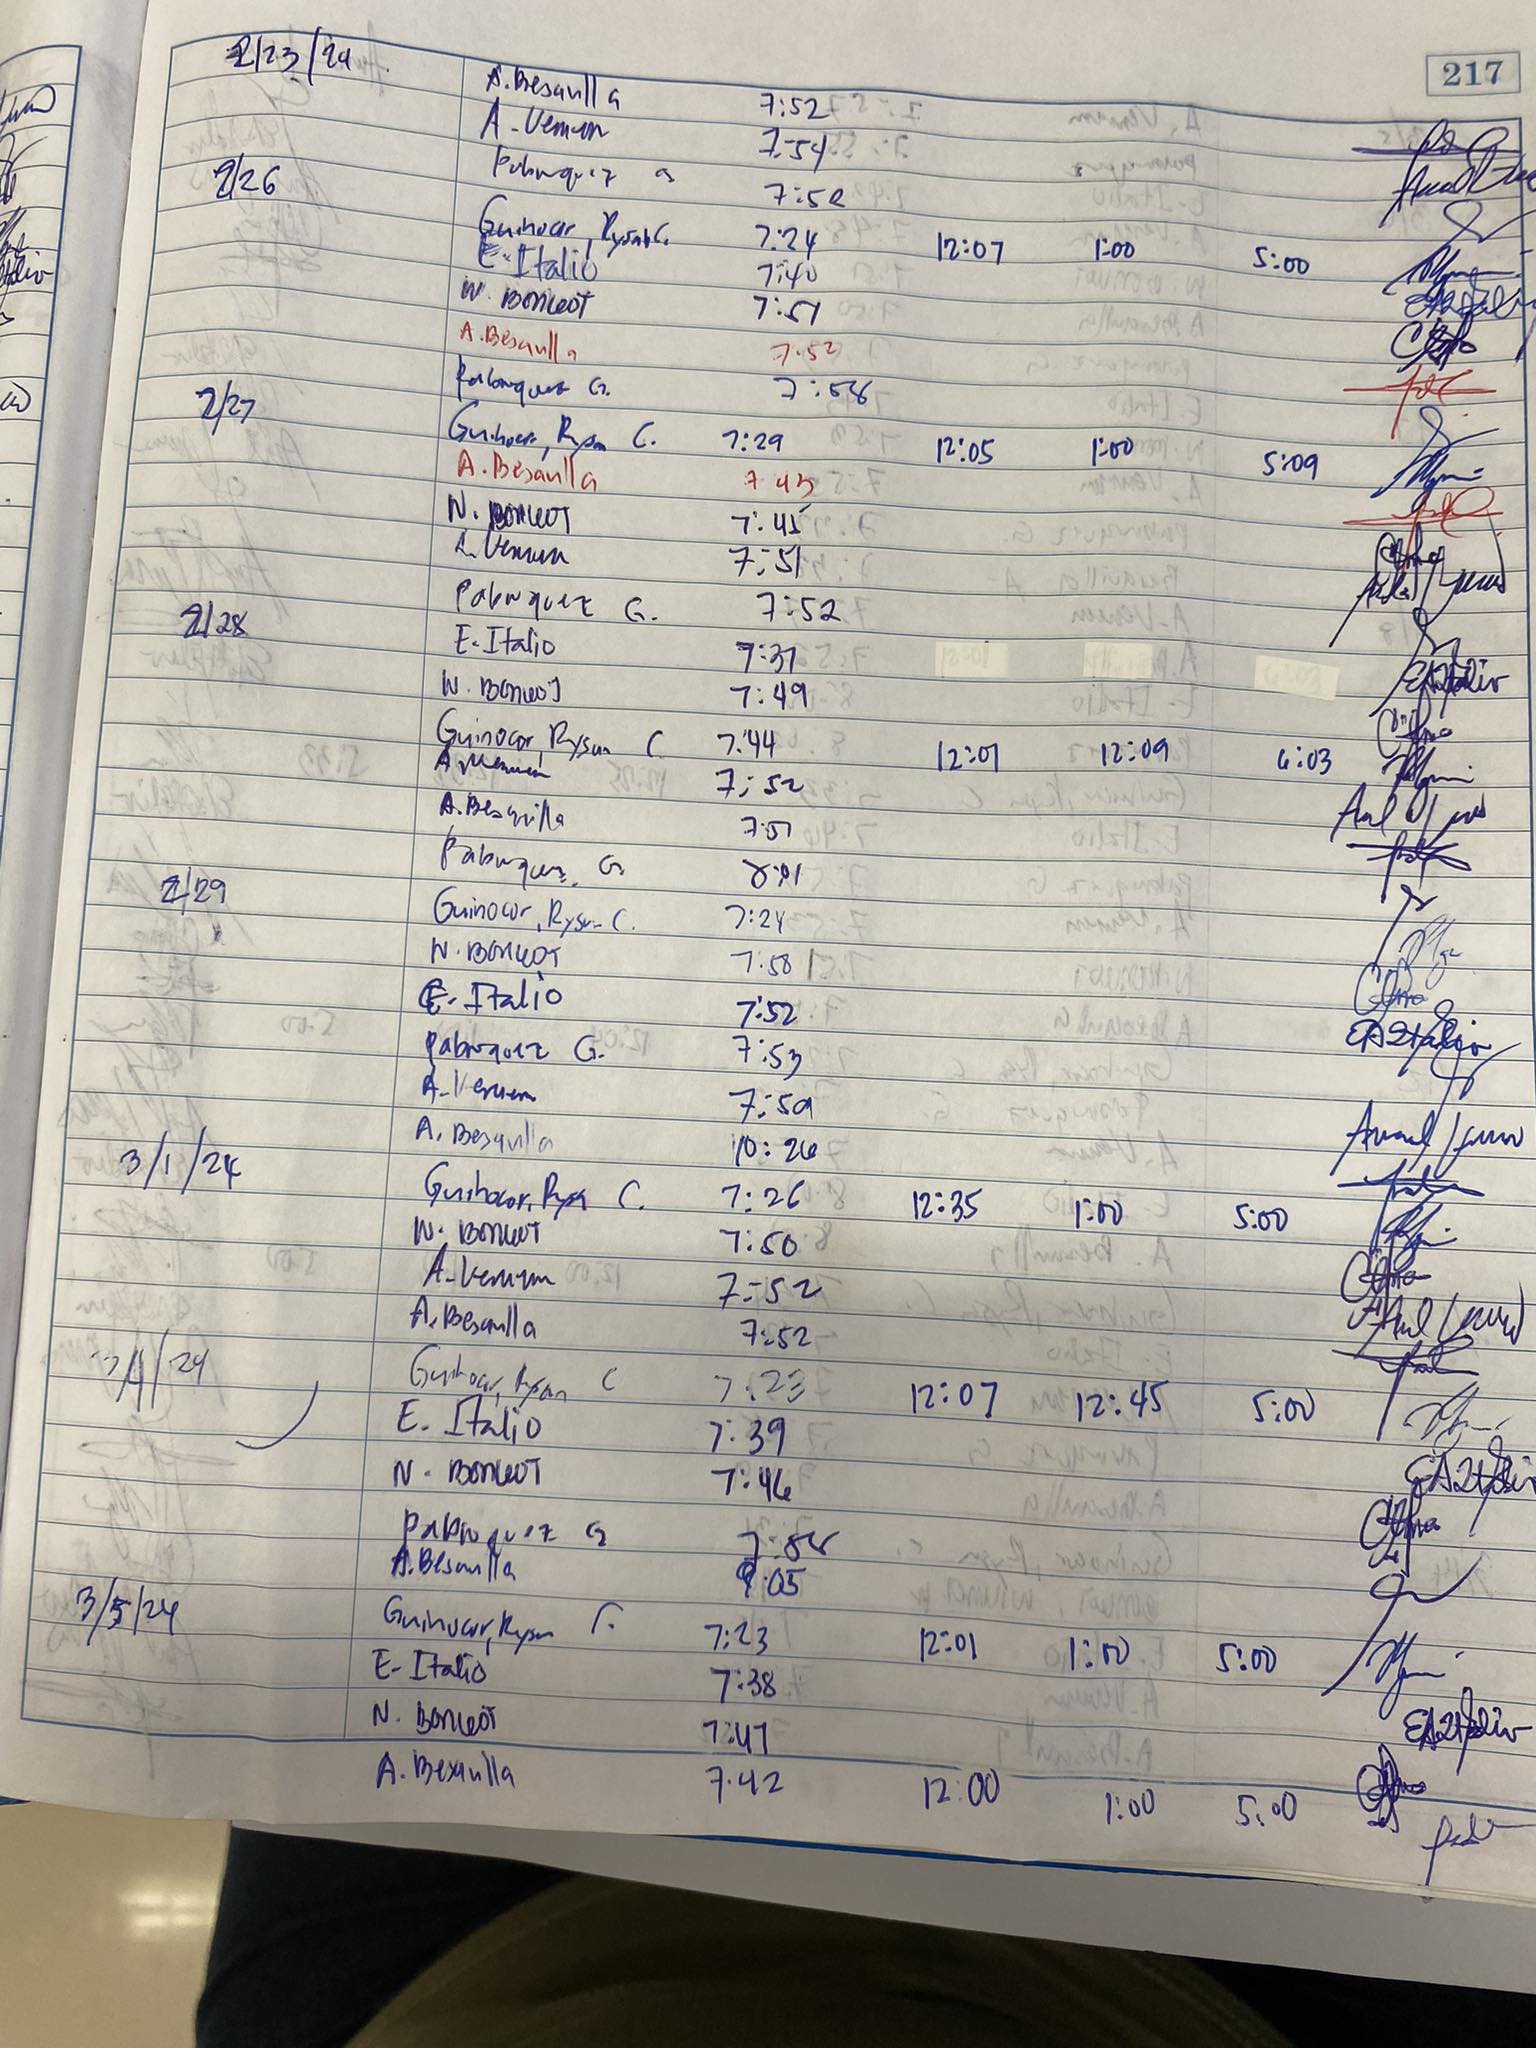 217
2/23/24
A. Besavilla 7:52
A. Venum 7:54
Pabruquez G 7:52
2/26
Guinocor, Rysan C. 7:24 12:07 1:00 5:00
E. Italio 7:40
N. BONGOT 7:51
A. Besavilla 7:52
Pabruquez G. 7:58
2/27
Guinocor, Rysan C. 7:29 12:05 1:00 5:09
A. Besavilla 7:43
N. BONGOT 7:45
A. Venum 7:51
Pabruquez G. 7:52
2/28
E. Italio 7:37
N. BONGOT 7:49
Guinocor, Rysan C 7:44 12:01 12:09 6:03
A. Venum 7:52
A. Besavilla 7:51
Pabruquez G.
2/29
Guinocor, Rysan C. 7:24
N. BONGOT 7:58
E. Italio 7:52
Pabruquez G. 7:53
A. Venum 7:59
A. Besavilla 10:26
3/1/24
Guinocor, Rysan C. 7:26 12:35 1:00 5:00
N. BONGOT 7:50
A. Venum 7:52
A. Besavilla 7:52
3/4/24
Guinocor, Rysan C 7:23 12:07 12:45 5:00
E. Italio 7:39
N. BONGOT 7:46
Pabruquez G
A. Besavilla 9:05
3/5/24
Guinocor, Rysan C. 7:23 12:01 1:00 5:00
E. Italio 7:38
N. BONGOT 7:47
A. Besavilla 7:42 12:00 1:00 5:00